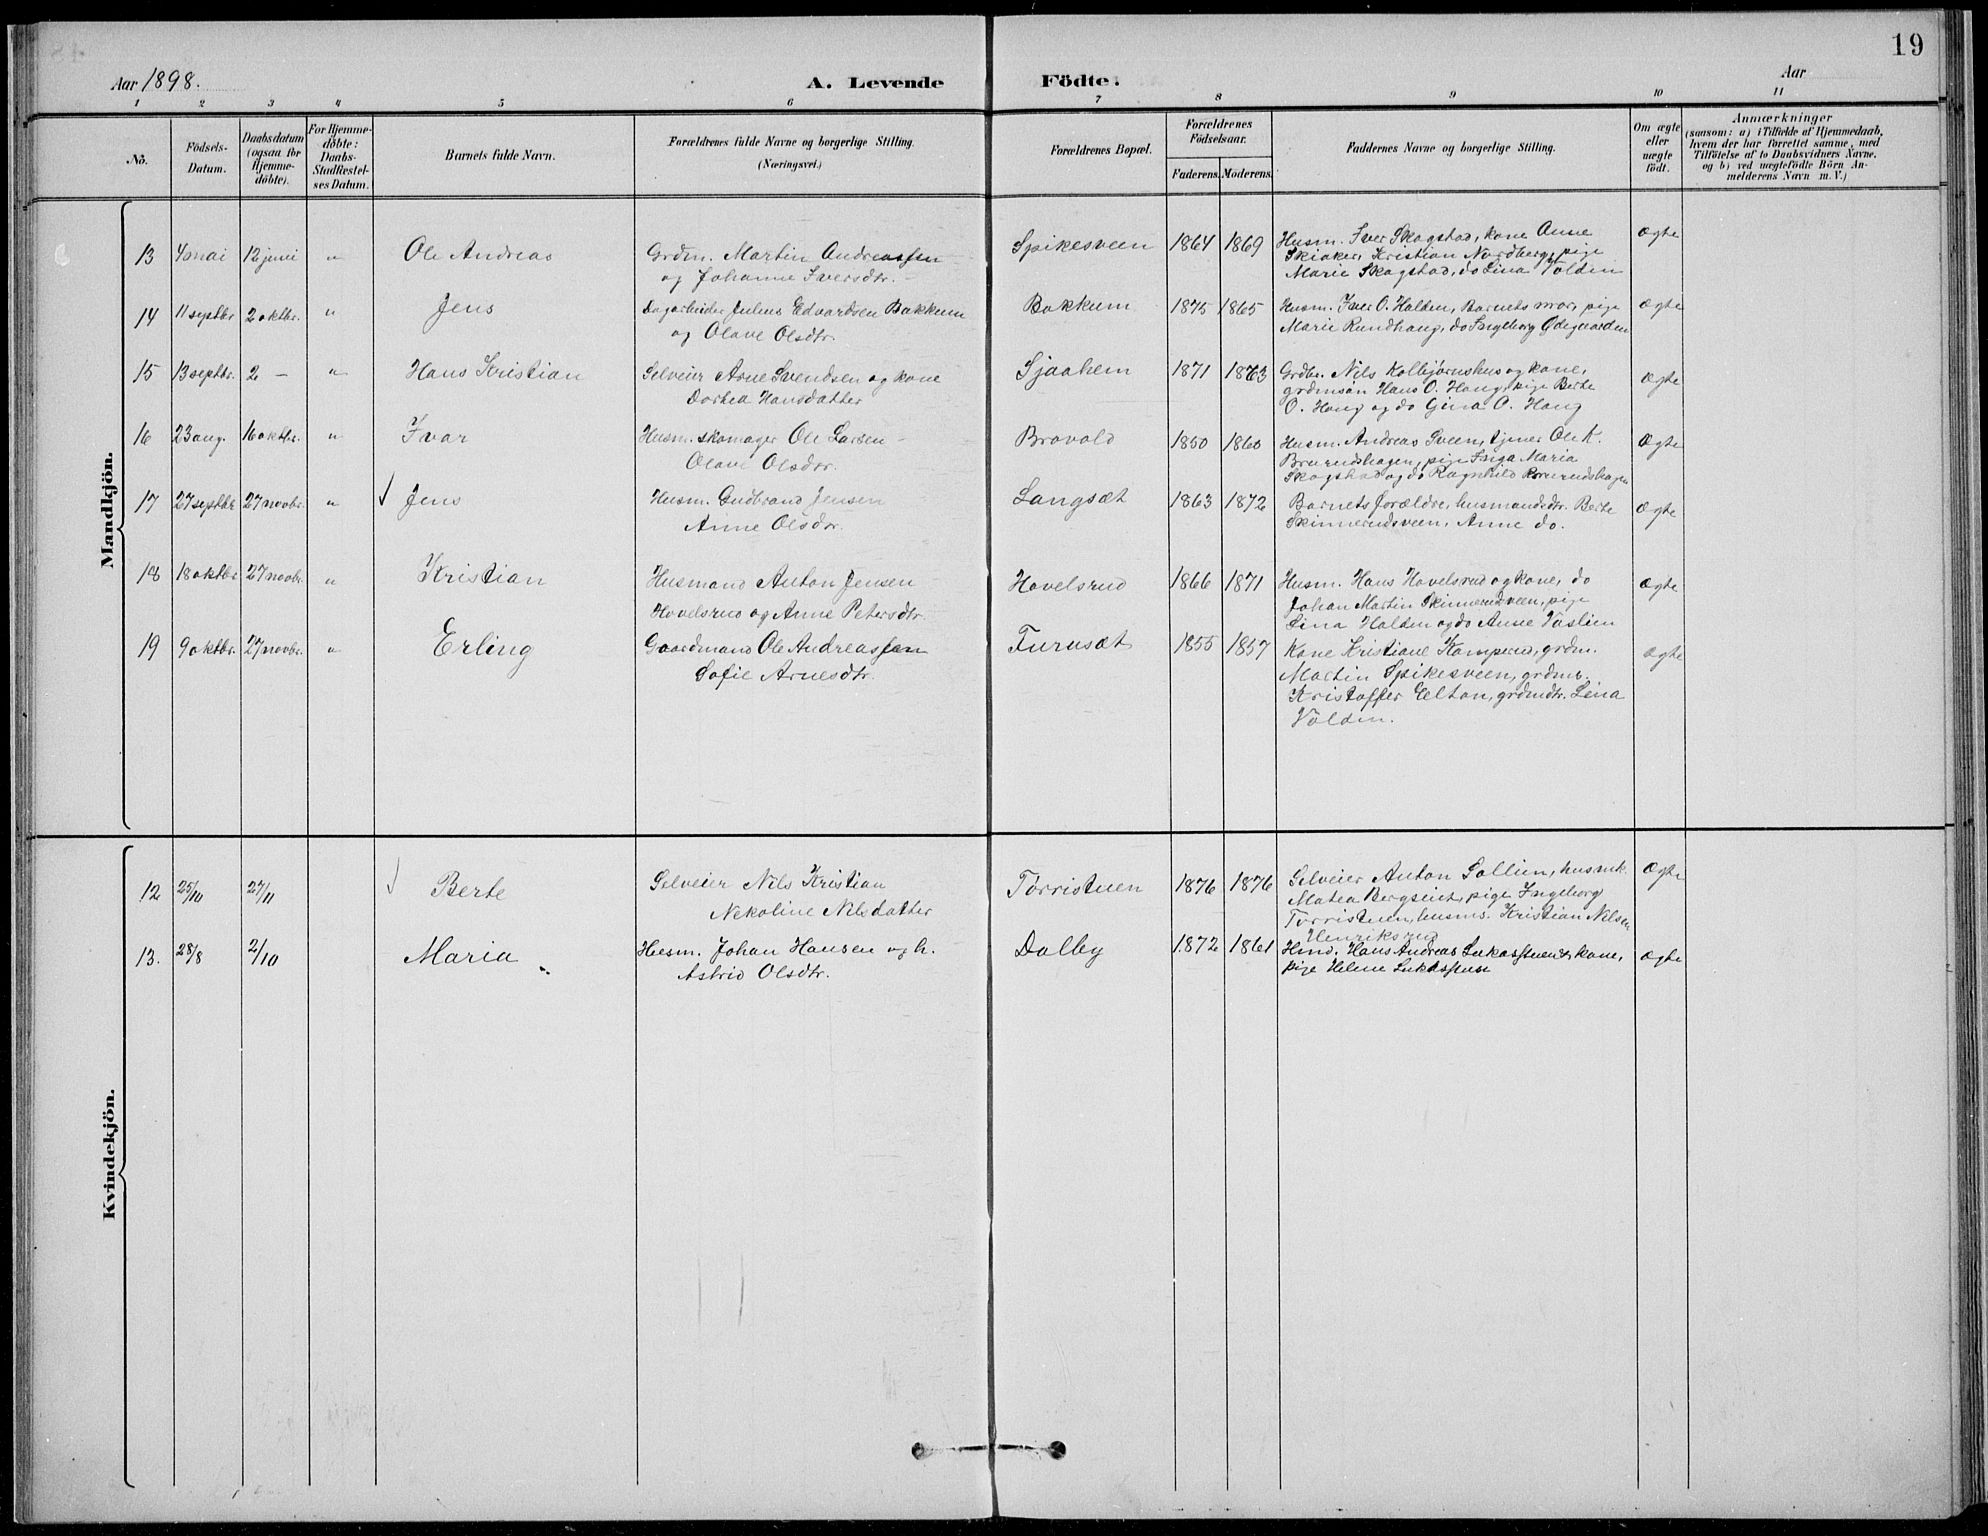 19
Aar 1898.
A. Levende Födte.
Aar
1 2 3 4 5 6 7 8 9 10 11
No.
Födsels-Datum.
Daabsdatum (ogsaa for Hjemme-döbte).
For Hjemme-döbte: Daabs-Stadfæstel-ses Datum.
Barnets fulde Navn.
Forældrenes fulde Navne og borgerlige Stilling.
(Næringsvei.)
Forældrenes Bopæl.
Forældrenes Födselsaar.
Faderens. Moderens.
Faddernes Navne og borgerlige Stilling.
Om ægte eller uægte födt.
Anmærkninger
(saasom: a) i Tilfælde af Hjemmedaab,
hvem der har forrettet samme, med
Tilföielse af to Daabsvidners Navne,
og b) ved uægtefödte Börn An-
melderens Navn m. V.)
Mandkjön.
13 4 mai 12 juni " Ole Andreas Grdm. Martin Andreassen Spikesveen 1864 1869 Husm. Iver Skogstad, kone Anne ægte
og Johanne Iversdtr. Skiaker, Kristian Nordberg, pige
Marie Skogstad, do Lina Volden
14 11 septbr 2 oktbr. " Jens Dagarbeider Julius Edvardsen Bakkum Bakkum 1875 1865 Husm. Iver O. Halden, Barnets mor, pige ægte
og Olave Olsdtr. Marie Rundhaug, do Ingeborg Ödegaarden
15 13 septbr. 2 - " Hans Kristian Selveier Arne Svendsen og kone Sjaahem 1871 1873 Grdbr. Nils Kolbjørnshus og kone, ægte
Dorthea Hansdatter grdmsøn Hans O. Haug, pige Berte
O. Haug og do Gina O. Haug
16 23 aug. 16 oktbr. " Ivar Husm. skomager Ole Larsen - Bravold 1850 1860 Husm. Andreas Sveen, tjener Ole K. Ægte
Olave Olsdtr. Bruerudshagen, pige Inga Maria
Skogstad og do Ragnhild Bruerudshagen
17 27 septbr 27 novbr. " Jens Husm. Gudbrand Jensen Langsæt 1863 1872 Barnets forældre, husmandsdtr. Berte Ægte
Anne Olsdtr. Skinnerudsveen, Anne do.
18 18 oktbr 27 novbr. " Kristian Husmand Anton Jensen Hovelsrud 1866 1871 Husm. Hans Hovelsrud og kone, do ægte
Hovelsrud og Anne Petersdtr. Johan Martin Skinnerudsveen, pige
Lina Halden og do Anne Vaslien
19 9 oktbr. 27 novbr. " Erling Gaardmand Ole Andreassen Furusæt 1855 1857 Kone Kristiane Kamperud, grdm. ægte
Sofie Arnesdtr. Martin Spikesveen, grdms.
Kristoffer Elton, grdmdtr. Lina
Volden.
Kvindekjön.
12 25/10 27/11 Berte Selveier Nils Kristian Torristuen 1876 1876 Selveier Anton Sollien, husmk. Ægte
Nekoline Nilsdatter Matea Bergseiet, pige Ingeborg
Torristuen, husms. Kristian Nilsen
Henriksrud
13. 28/8 2/10 Maria Husm. Johan Hansen og h. Dalby 1872 1861 Hmd. Hans Andreas Lukasstuen & kone, Ægte
Astrid Olsdtr. pige Helene Lukasstuen